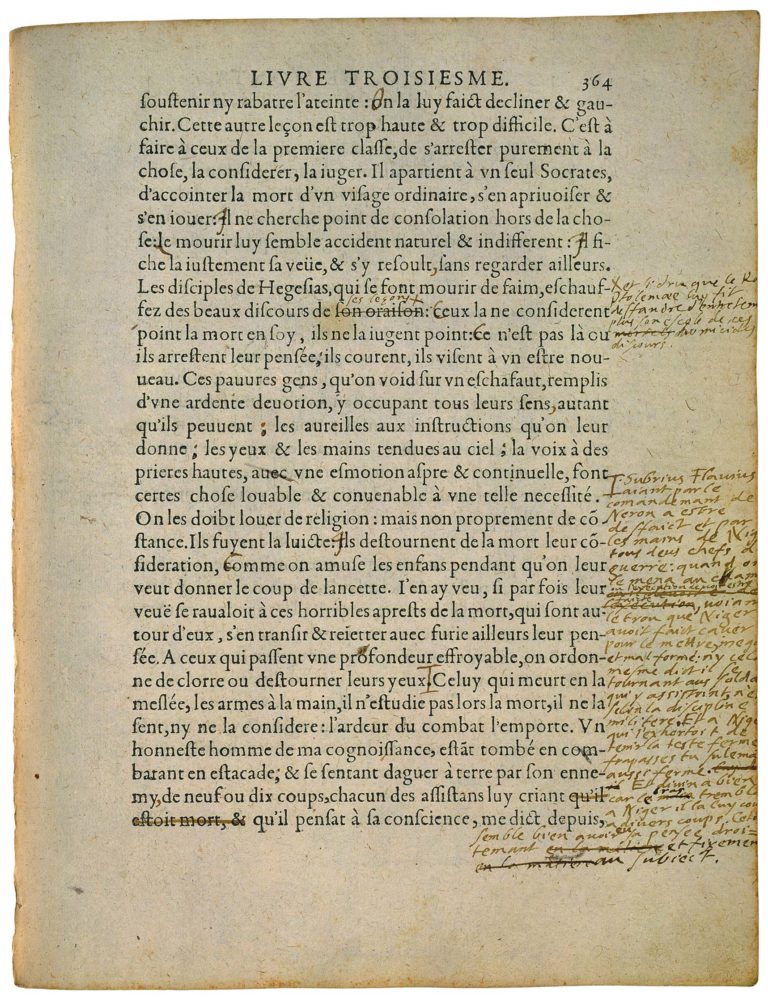 LIVRE TROISIESME. 364
soustenir ny rabatre l'ateinte : On la luy faict decliner & gau-
chir. Cette autre leçon est trop haute & trop difficile. C'est à
faire à ceux de la premiere classe, de s'arrester purement à la
chose, la considerer, la iuger. Il apartient à vn seul Socrates,
d'accointer la mort d'vn visage ordinaire, s'en apriuoiser &
s'en iouer: Il ne cherche point de consolation hors de la cho-
se: le mourir luy semble accident naturel & indifferent : Il fi-
che la iustement sa veüe, & s'y resoult, sans regarder ailleurs.
Les disciples de Hegesias, qui se font mourir de faim, eschauf-
ses leçons
fez des beaux discours de son oraison: Ceux la ne considerent
point la mort en soy, ils ne la iugent point: Ce n'est pas là ou
ils arrestent leur pensée; ils courent, ils visent à vn estre nou-
ueau. Ces pauures gens, qu'on void sur vn eschafaut, remplis
d'vne ardente deuotion, y occupant tous leurs sens, autant
qu'ils peuuent ; les aureilles aux instructions qu'on leur
donne ; les yeux & les mains tendues au ciel ; la voix à des
prieres hautes, auec vne esmotion aspre & continuelle, font
certes chose louable & conuenable à vne telle necessité.
On les doibt louer de religion : mais non proprement de cõ-
stance. Ils fuyent la luicte: Ils destournent de la mort leur cõ-
sideration, Comme on amuse les enfans pendant qu'on leur
veut donner le coup de lancette. I'en ay veu, si par fois leur
veuë se raualoit à ces horribles aprests de la mort, qui sont au-
tour d'eux, s'en transir & reietter auec furie ailleurs leur pen-
sée. A ceux qui passent vne profondeur effroyable, on ordon-
ne de clorre ou destourner leurs yeux. Celuy qui meurt en la
meslée, les armes à la main, il n'estudie pas lors la mort, il ne la
sent, ny ne la considere: l'ardeur du combat l'emporte. Vn
honneste homme de ma cognoissance, estãt tombé en com-
barant en estacade; & se sentant daguer à terre par son enne-
my, de neuf ou dix coups, chacun des assistans luy criant qu'il
estoit mort, & qu'il pensat à sa conscience, me dict, depuis,
et si dru que le
Ptolemae luy fit
defandre
plus son escole de ces
discours.
Subrius Flavius
aiant par le
comandemant de
Neron a estre
desfaict et par
les mains de
tous deus chefs de
guerre: quand
le mena au
voiant
le trou que Niger
avoit faict caver
pour le mettre
et mal formé: ny
mesme dict il se
tournant aus
qui y assistoint n'
selon la discipline
militere. Et a
qui l'exhortoit de
tenir la teste ferme
frapasses tu
aussi ferme.
Et divina bien
car le bras
a Niger il la luy
a divers coups.
semble bien avoir eu sa pensee droi-
temant et fixemant
au subiect.